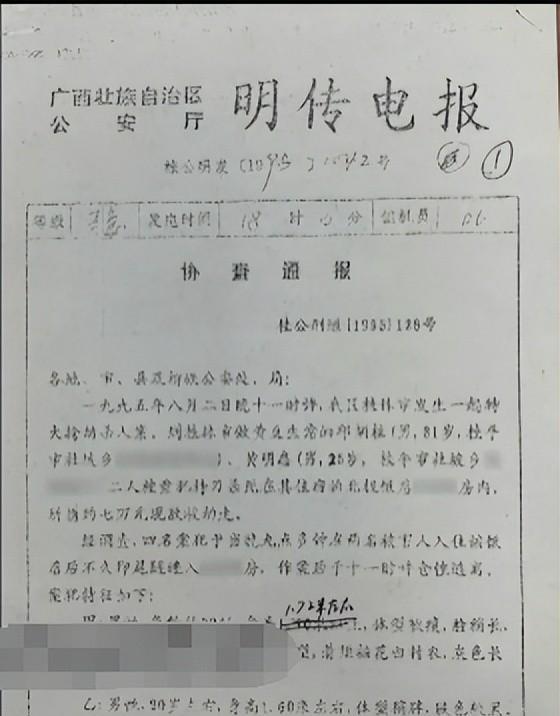 广西壮族自治区
公安厅
明传电报
桂公明发(1995)1542号
①
等级 发电时间 18时 分
协查通报
桂公刑(1995)139号
各地、市、县及柳铁公安处、局:
一九九五年八月二日晚十一时许,我区桂林市发生一起特
大抢劫杀人案。到桂林市做黄豆生意的邓朝柱(男,31岁,桂平
市社坡乡 )、黄明 (男,25岁,桂平市社坡乡
二人被案犯持刀杀死在其住宿的 饭店 房内,
所携约七万元现款被劫走。
经调查,四名案犯于当晚九点多钟在两名被害人入住该饭
店后不久即尾随进入 房,作案后于十一时许仓惶逃离,
案犯特征如下:
1.72米左右
甲:男性, 体型较瘦,脸稍长,
花白衬衣,灰色长
乙:男性,20岁左右,身高1.60米左右,体型稍胖,